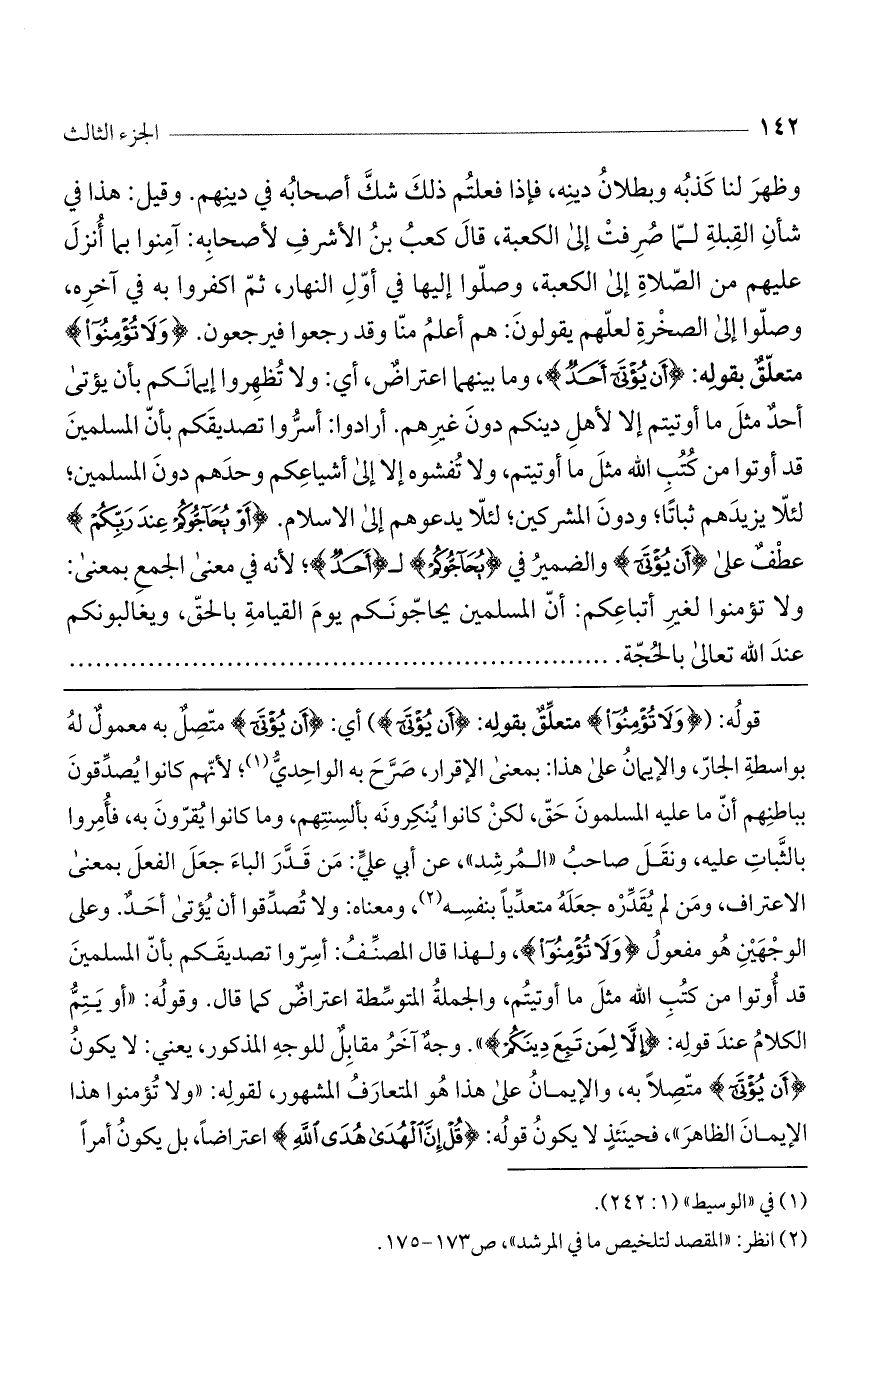 ١٤٢ ــــــــــــــــــــــــــــــــــــــــــــــــ الجزء الثالث
وظهرَ لنا كَذبُه وبطلانُ دينِه، فإذا فعلتُم ذلكَ شكَّ أصحابُه في دينِهم. وقيل: هذا في
شأنِ القِبلةِ لـمّا صُرِفتْ إلىٰ الكعبة، قالَ كعبُ بنُ الأشرفِ لأصحابِه: آمِنوا بما أُنزلَ
عليهم من الصّلاةِ إلىٰ الكعبة، وصلّوا إليها في أوّلِ النهار، ثمّ اكفروا به في آخرِه،
وصلّوا إلىٰ الصخْرةِ لعلّهم يقولونَ: هم أعلمُ منّا وقد رجعوا فيرجعون. ﴿وَلَا تُؤْمِنُوٓا۟﴾
متعلّقٌ بقولِه: ﴿أَن يُؤْتَىٰٓ أَحَدٌ﴾، وما بينهما اعتراضٌ، أي: ولا تُظهِروا إيمانَـكم بأن يؤتىٰ
أحدٌ مثلَ ما أوتيتم إلا لأهلِ دينكم دونَ غيرِهم. أرادوا: أسرُّوا تصديقَكم بأنّ المسلمينَ
قد أوتوا من كُتُبِ الله مثلَ ما أوتيتم، ولا تُفشوه إلا إلىٰ أشياعِكم وحدَهم دونَ المسلمين؛
لئلّا يزيدَهم ثباتًا؛ ودونَ المشركين؛ لئلّا يدعوهم إلىٰ الاسلام. ﴿أَوْ يُحَآجُّوكُمْ عِندَ رَبِّكُمْ﴾
عطْفٌ علىٰ ﴿أَن يُؤْتَىٰٓ﴾ والضميرُ في ﴿يُحَآجُّوكُمْ﴾ لـ﴿أَحَدٌ﴾؛ لأنه في معنىٰ الجمعِ بمعنىٰ:
ولا تؤمنوا لغيرِ أتباعِكم: أنّ المسلمين يحاجّونَـكم يومَ القيامةِ بالحقّ، ويغالبونكم
عندَ الله تعالىٰ بالحُجّة. ............................................................
قولُه: (﴿وَلَا تُؤْمِنُوٓا۟﴾ متعلِّقٌ بقولِه: ﴿أَن يُؤْتَىٰٓ﴾) أي: ﴿أَن يُؤْتَىٰٓ﴾ متّصِلٌ به معمولٌ لهُ
بواسطةِ الجارّ، والإيمانُ علىٰ هذا: بمعنىٰ الإقرار، صَرَّحَ به الواحِديُّ(١)؛ لأنّهم كانوا يُصدِّقونَ
بباطنِهم أنّ ما عليه المسلمونَ حَقّ، لكنْ كانوا يُنكِرونَه بألسِنتِهم، وما كانوا يُقرّونَ به، فأُمِروا
بالثَّباتِ عليه، ونقَـلَ صاحبُ «الـمُرشِد»، عن أبي عليٍّ: مَن قَـدَّرَ الباءَ جعَلَ الفعلَ بمعنىٰ
الاعتراف، ومَن لم يُقَدِّرْه جعَلَهُ متعدِّياً بنفسِـه(٢)، ومعناه: ولا تُصدِّقوا أن يُؤتىٰ أحَـدٌ. وعلى
الوجْهَيْنِ هُو مفعولُ ﴿وَلَا تُؤْمِنُوٓا۟﴾، ولـهذا قال المصنِّـفُ: أسِرّوا تصديقَـكم بأنّ المسلمينَ
قد أُوتوا من كتُبِ الله مثلَ ما أوتيتُم، والجملةُ المتوسِّطة اعتراضٌ كما قال. وقولُه: «أو يَـتِمُّ
الكلامُ عندَ قولِه: ﴿إِلَّا لِمَن تَبِعَ دِينَكُمْ﴾». وجهٌ آخَرُ مقابِلٌ للوجهِ المذكور، يعني: لا يكونُ
﴿أَن يُؤْتَىٰٓ﴾ متّصِلاً به، والإيمـانُ علىٰ هذا هُو المتعارَفُ المشهور، لقولِه: «ولا تُؤمنوا هذا
الإيمـانَ الظاهرَ»، فحينَئذٍ لا يكونُ قولُه: ﴿قُلْ إِنَّ ٱلْهُدَىٰ هُدَى ٱللَّهِ﴾ اعتراضاً، بل يكونُ أمراً
(١) في «الوسيط» (١: ٢٤٢).
(٢) انظر: «المقصد لتلخيص ما في المرشد»، ص١٧٣-١٧٥.